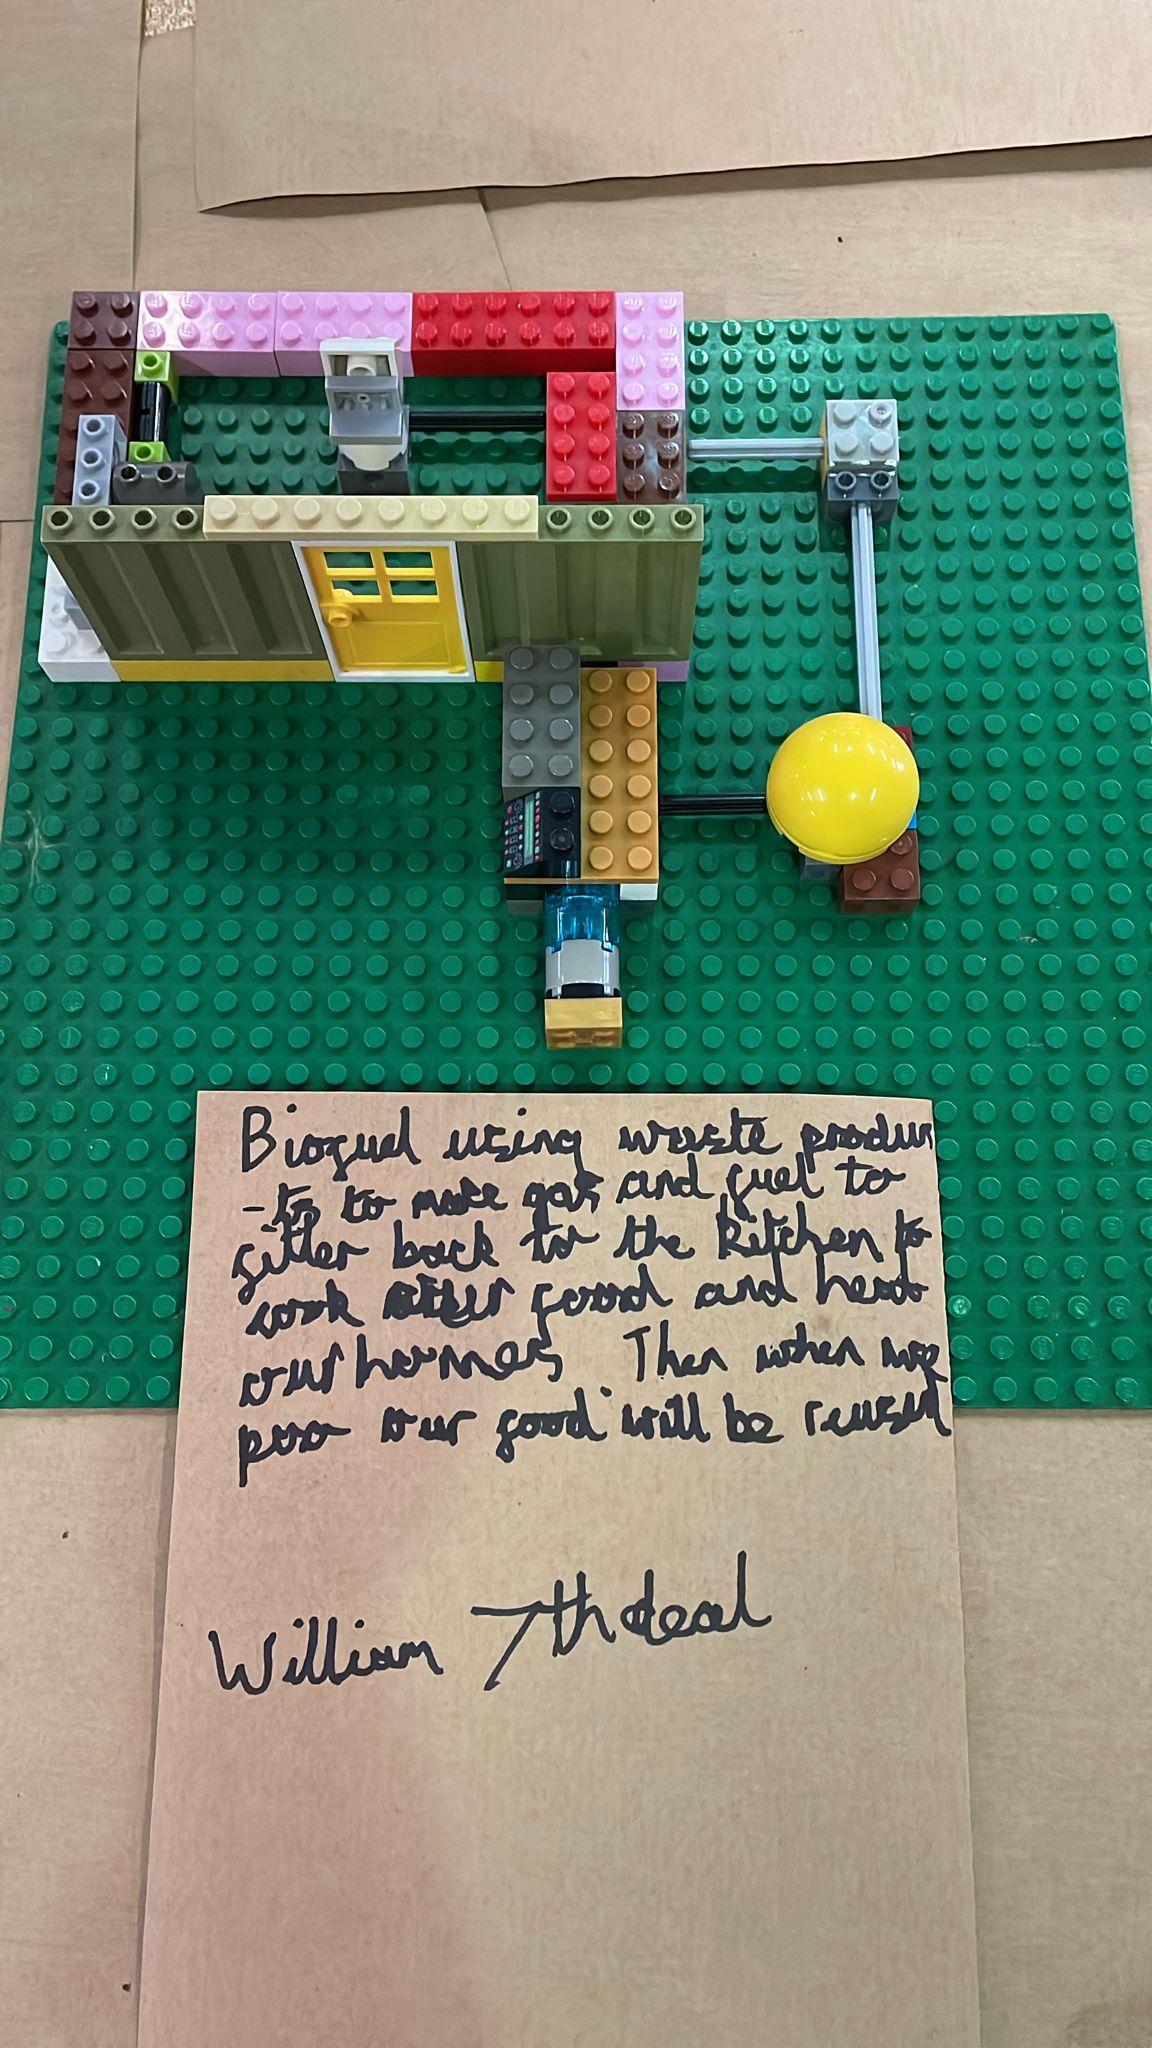 Biofuel using waste produc
-ts to make gas and fuel to
filter back to the kitchen to
cook food and heat
our homes Then when we
poo our food will be reused
William